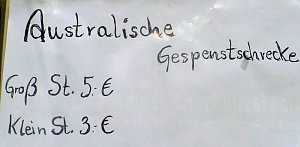 Australische
Gespenstschrecke
Groß St. 5.-€
Klein St. 3.-€